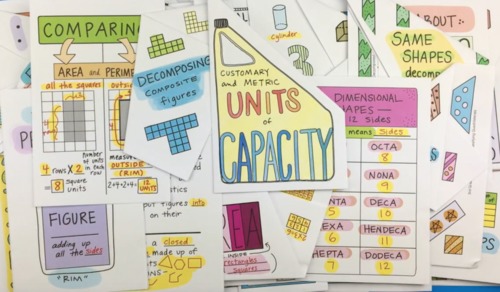 COMPARIN
AREA and PERIM
all the squares
outsi
4 rows X 2
number of units in each row
= 8 square units
measure
OUTSIDE
(RIM)
2+4+2+4=
12 UNITS
DECOMPOSING
COMPOSITE
figures
CUSTOMARY
and METRIC
UNITS
of
CAPACITY
cylinder
3
ABOUT:
SAME
SHAPES
decomp
DIMENSIONAL
HAPES
12 Sides
means Sides
OCTA
8
NONA
9
NTA
5
DECA
10
EXA
6
HENDECA
11
HEPTA
7
DODECA
12
PE
FIGURE
adding up
all the sides
"RIM"
figures into
on their
a closed
made up of
REA
INSIDE
rectangles
squares